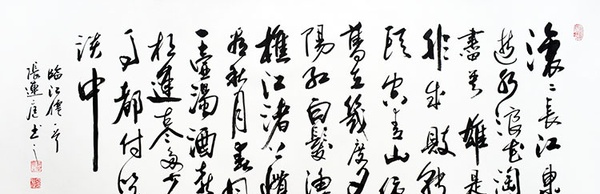 滚〻長江東
逝水浪花淘
盡英雄是
非成敗轉
頭空青山依
舊在幾度夕
陽紅白髮漁
樵江渚上慣
看秋月春風
一壺濁酒喜
相逢古今多少
事都付笑
談中
臨江僊
張蓮庭書